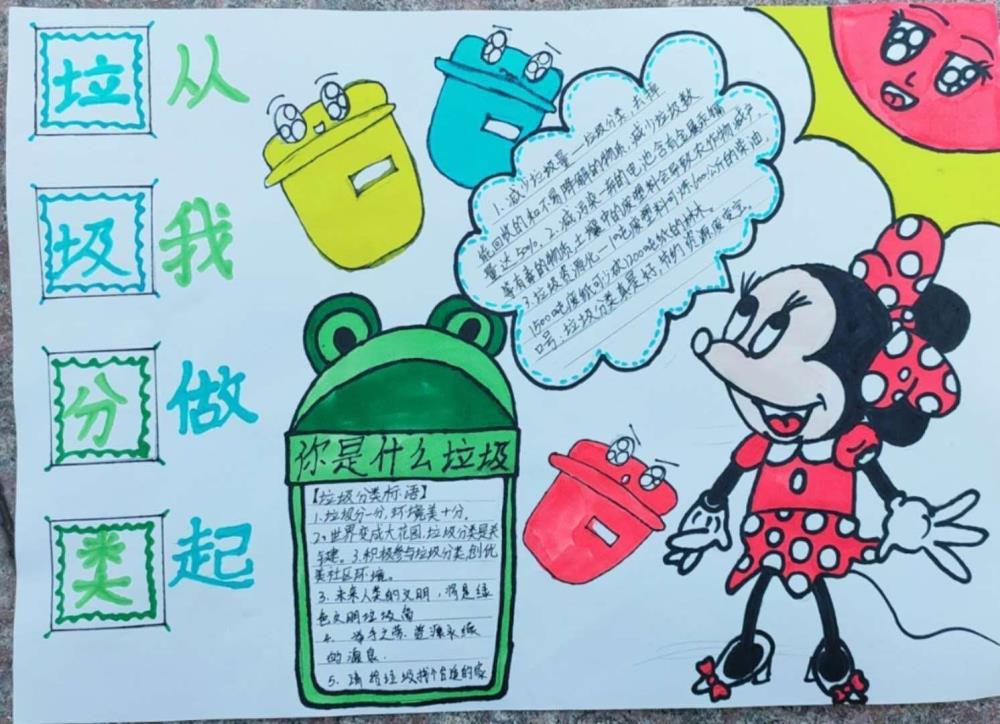 垃圾分类
从我做起
1.减少垃圾量—垃圾分类,去掉
能回收的和不易降解的物质,减少垃圾数
量达50%。2.减污染—弃的电池含有金属汞镉
等有毒的物质土壤中的废塑料会导致农作物减产,
3.垃圾资源化.一1吨废塑料可炼600公斤的柴油
1500吨废纸可少砍1200吨纸的林木。
口号:垃圾分类真是好,节约资源废变宝。
你是什么垃圾
【垃圾分类标语】
1.垃圾分一分,环境美十分。
2、世界变成大花园,垃圾分类是关
键。3.积极参与垃圾分类,创优
美社区环境。
3.未来人类的文明,将是绿
色文明垃圾
4. 举手之劳.资源永续
的源泉.
5.请给垃圾找个合适的家